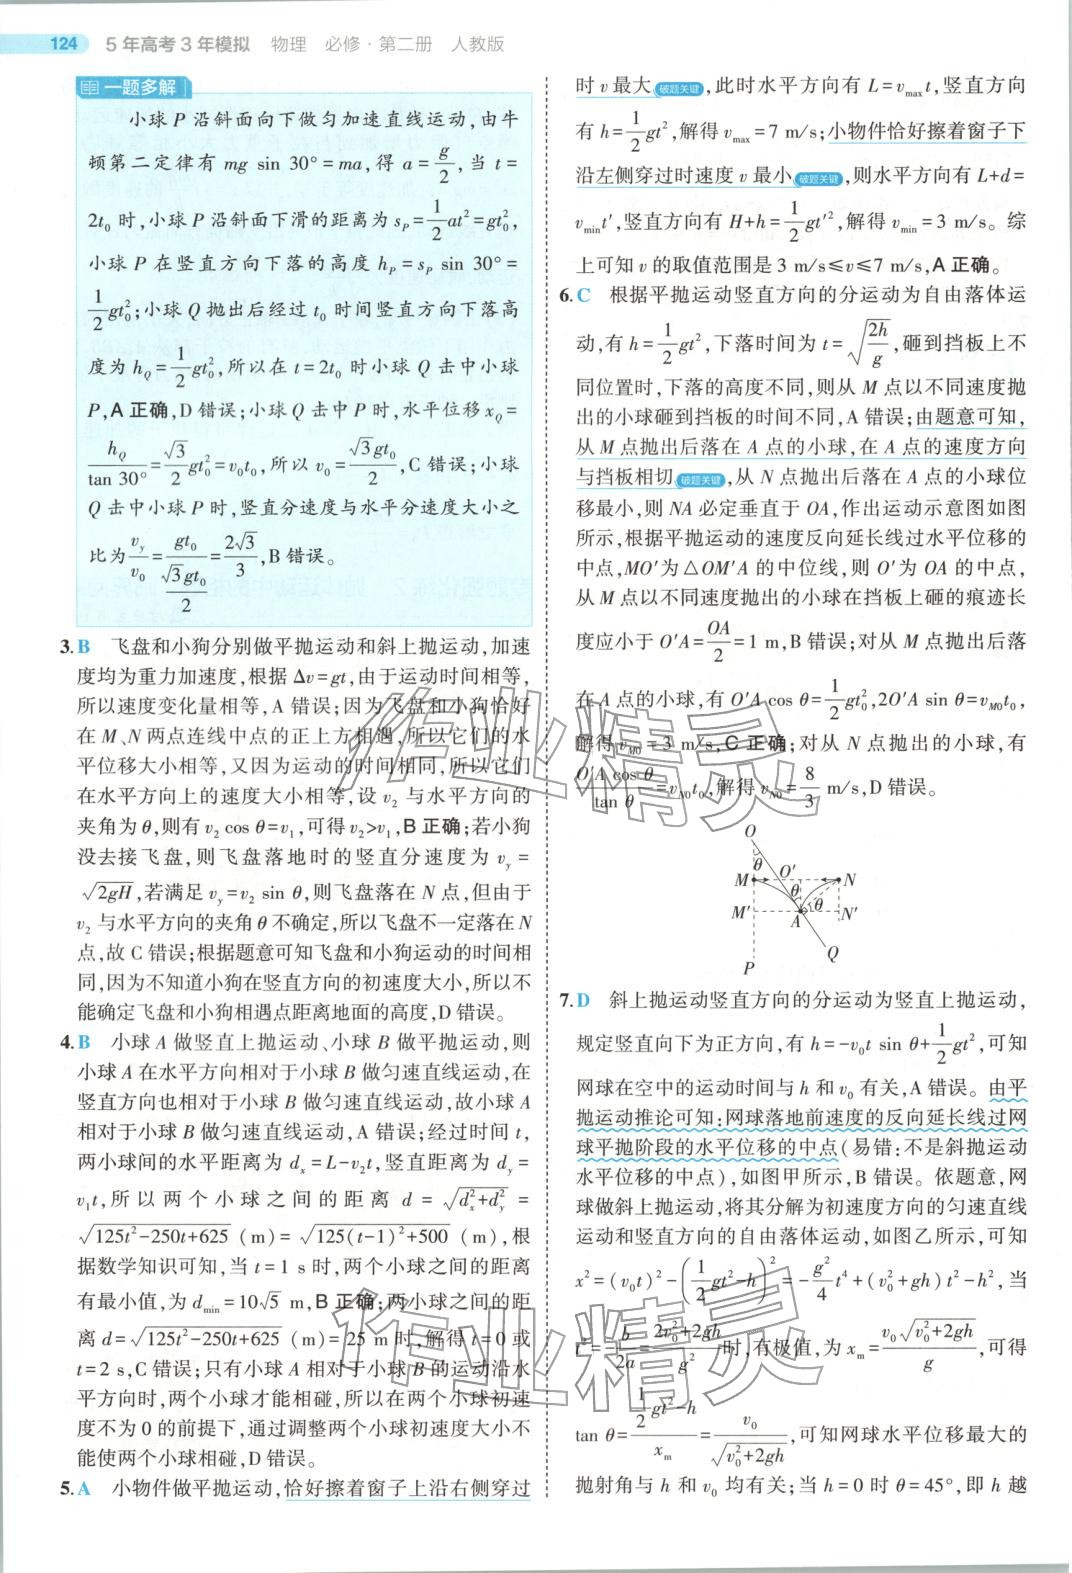 124 5年高考3年模拟 物理 必修·第二册 人教版
一题多解
小球P沿斜面向下做匀加速直线运动,由牛
顿第二定律有 mg sin 30°=ma,得 a=g/2,当 t=
2t₀时,小球P沿斜面下滑的距离为 s_P=1/2at²=gt₀²,
小球P在竖直方向下落的高度 h_P=s_P sin 30°=
1/2gt₀²;小球Q抛出后经过 t₀ 时间竖直方向下落高
度为 h_Q=1/2gt₀²,所以在 t=2t₀ 时小球Q击中小球
P,A正确,D错误;小球Q击中P时,水平位移 x_Q=
h_Q/tan 30°=√3/2gt₀²=v₀t₀,所以 v₀=√3gt₀/2,C错误;小球
Q击中小球P时,竖直分速度与水平分速度大小之
比为 v_y/v₀=gt₀/(√3gt₀/2)=2√3/3,B错误。
3.B 飞盘和小狗分别做平抛运动和斜上抛运动,加速
度均为重力加速度,根据 Δv=gt,由于运动时间相等,
所以速度变化量相等,A错误;因为飞盘和小狗恰好
在M、N两点连线中点的正上方相遇,所以它们的水
平位移大小相等,又因为运动的时间相同,所以它们
在水平方向上的速度大小相等,设 v₂ 与水平方向的
夹角为θ,则有 v₂ cos θ=v₁,可得 v₂>v₁,B正确;若小狗
没去接飞盘,则飞盘落地时的竖直分速度为 v_y=
√2gH,若满足 v_y=v₂ sin θ,则飞盘落在N点,但由于
v₂ 与水平方向的夹角θ不确定,所以飞盘不一定落在N
点,故C错误;根据题意可知飞盘和小狗运动的时间相
同,因为不知道小狗在竖直方向的初速度大小,所以不
能确定飞盘和小狗相遇点距离地面的高度,D错误。
4.B 小球A做竖直上抛运动、小球B做平抛运动,则
小球A在水平方向相对于小球B做匀速直线运动,在
竖直方向也相对于小球B做匀速直线运动,故小球A
相对于小球B做匀速直线运动,A错误;经过时间t,
两小球间的水平距离为 d_x=L-v₂t,竖直距离为 d_y=
v₁t,所以两个小球之间的距离 d=√(d_x²+d_y²)=
√(125t²-250t+625) (m)=√(125(t-1)²+500) (m),根
据数学知识可知,当 t=1 s 时,两个小球之间的距离
有最小值,为 d_min=10√5 m,B正确;两小球之间的距
离 d=√(125t²-250t+625) (m)=25 m 时,解得 t=0 或
t=2 s,C错误;只有小球A相对于小球B的运动沿水
平方向时,两个小球才能相碰,所以在两个小球初速
度不为0的前提下,通过调整两个小球初速度大小不
能使两个小球相碰,D错误。
5.A 小物件做平抛运动,恰好擦着窗子上沿右侧穿过
时 v 最大 破题关键 ,此时水平方向有 L=v_max t,竖直方向
有 h=1/2gt²,解得 v_max=7 m/s;小物件恰好擦着窗子下
沿左侧穿过时速度 v 最小 破题关键 ,则水平方向有 L+d=
v_min t′,竖直方向有 H+h=1/2gt′²,解得 v_min=3 m/s。综
上可知 v 的取值范围是 3 m/s≤v≤7 m/s,A正确。
6.C 根据平抛运动竖直方向的分运动为自由落体运
动,有 h=1/2gt²,下落时间为 t=√(2h/g),砸到挡板上不
同位置时,下落的高度不同,则从M点以不同速度抛
出的小球砸到挡板的时间不同,A错误;由题意可知,
从M点抛出后落在A点的小球,在A点的速度方向
与挡板相切 破题关键 ,从N点抛出后落在A点的小球位
移最小,则NA必定垂直于OA,作出运动示意图如图
所示,根据平抛运动的速度反向延长线过水平位移的
中点,MO′为△OM′A的中位线,则O′为OA的中点,
从M点以不同速度抛出的小球在挡板上砸的痕迹长
度应小于 O′A=OA/2=1 m,B错误;对从M点抛出后落
在A点的小球,有 O′A cos θ=1/2gt₀²,2O′A sin θ=v_M0t₀,
解得 v_M0=3 m/s,C正确;对从N点抛出的小球,有
O′A cos θ/tan θ=v_N0t₀,解得 v_N0=8/3 m/s,D错误。
O
θ
M O′ N
θ
M′ θ N′
A
P Q
7.D 斜上抛运动竖直方向的分运动为竖直上抛运动,
规定竖直向下为正方向,有 h=-v₀t sin θ+1/2gt²,可知
网球在空中的运动时间与 h 和 v₀ 有关,A错误。由平
抛运动推论可知:网球落地前速度的反向延长线过网
球平抛阶段的水平位移的中点(易错:不是斜抛运动
水平位移的中点),如图甲所示,B错误。依题意,网
球做斜上抛运动,将其分解为初速度方向的匀速直线
运动和竖直方向的自由落体运动,如图乙所示,可知
x²=(v₀t)²-(1/2gt²-h)²=-g²/4t⁴+(v₀²+gh)t²-h²,当
t²=-b/2a=(2v₀²+2gh)/g²时,有极值,为 x_m=v₀√(v₀²+2gh)/g,可得
tan θ=(1/2gt²-h)/x_m=v₀/√(v₀²+2gh),可知网球水平位移最大的
抛射角与 h 和 v₀ 均有关;当 h=0 时 θ=45°,即 h 越
作业精灵
作业精灵